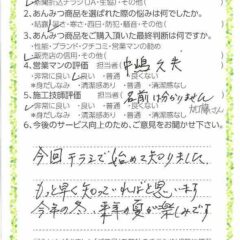 2. あんみつ商品を選ばれた際の悩みは何でしたか。
3. あんみつ商品をご購入頂いた最終判断は何ですか。
・性能・ブランド・クチコミ・営業マンの勧め
・販売店の信用・その他(
4. 営業マンの評価 担当者( 中嶋 久夫
・非常に良い ・良い ・普通 ・良くない
・身だしなみ ・清潔感あり ・普通 ・清潔感なし
5. 施工技師評価 担当者( 名前は分かりません
加藤さん
・非常に良い ・良い ・普通 ・良くない
・身だしなみ ・清潔感あり ・普通 ・清潔感なし
6. 今後のサービス向上のため、ご意見をお聞かせ下さい。
今回チラシで始めて知りました。
もっと早く知っていればと思います
今年の冬、来年の夏が楽しみです